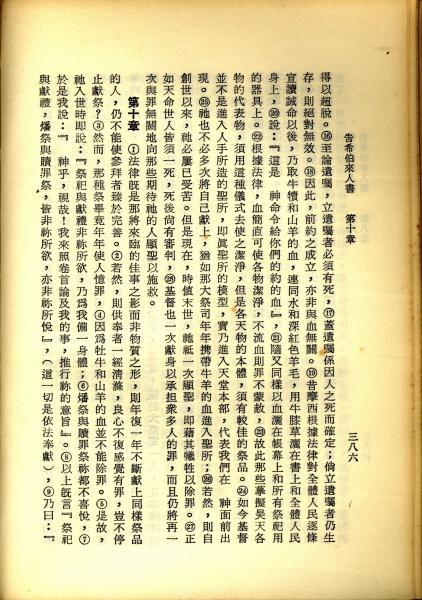 告希伯來人書　第十章
三八六
得以超脫。⑯至論遺囑，立遺囑者必須有死，⑰蓋遺囑係因人之死而確定；倘立遺囑者仍生
存，則絕對無效。⑱因此，前約之成立，亦非與血無關。⑲昔摩西根據法律對全體人民逐條
宣讀誡命以後，乃取牛犢和山羊的血，連同水和深紅色羊毛，用牛膝草灑在書上和全體人民
身上，⑳說：『這是　神命令給你們的約的血』，㉑隨又同樣以血灑在帳幕上和所有祭祀用
的器具上。㉒根據法律，血簡直可使各物潔淨，不流血則罪不蒙赦，㉓故此那些摹擬昊天各
物的代表物，須用這種儀式去使之潔淨，但是各天物的本體，須有較佳的祭品。㉔如今基督
並不是進入人手所造的聖所，即眞聖所的模型，實乃進入天堂本部，代表我們在　神面前出
現。㉕祂也不必多次將自己獻上，猶如那大祭司年年携帶牛羊的血進入聖所；㉖若然，則自
創世以來，祂必屢已受苦。但是現在，時値末世，祂祗一次顯聖，即藉其犧牲以除罪。㉗正
如天命世人皆須一死，死後尚有審判，㉘基督也一次獻身以承担衆多人的罪，而且仍將再一
次與罪無關地向那些期待祂的人顯聖以施救。
第十章　①法律旣是那將來臨的佳事之影而非物質之形，則年復一年不斷獻上同樣祭品
的人，仍不能使參拜者臻於完善。②若然，則供奉者一經清滌，良心不復感覺有罪，豈不停
止獻祭？③然而，那種祭畢竟年年使人憶罪，④因爲牡牛和山羊的血並不能除罪。⑤是故，
祂入世時即說：『祭祀與獻禮非祢所欲，乃爲我備一身體；⑥燔祭與贖罪祭祢都不喜悅，⑦
於是我說：『　神乎，視哉！我來照卷首論及我的事，推行祢的意旨』。⑧以上旣言『祭祀
與獻禮，燔祭與贖罪祭，皆非祢所欲，亦非祢所悅』，（這一切是依法奉獻），⑨乃曰：『